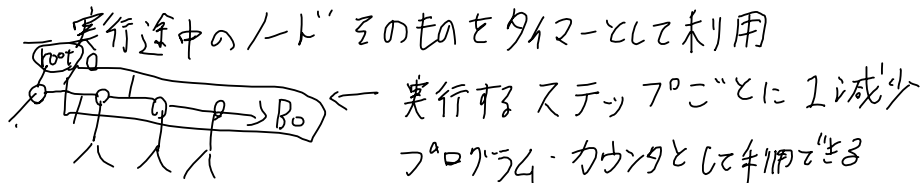 実行途中のノードそのものをタイマーとして利用
root 0
B0 ← 実行するステップごとに1減少
プログラム・カウンタとして利用できる